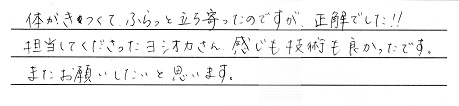 体がきつくて、ふらっと立ち寄ったのですが、正解でした!!
担当してくださったヨシオカさん、感じも技術も良かったです。
またお願いしたいと思います。